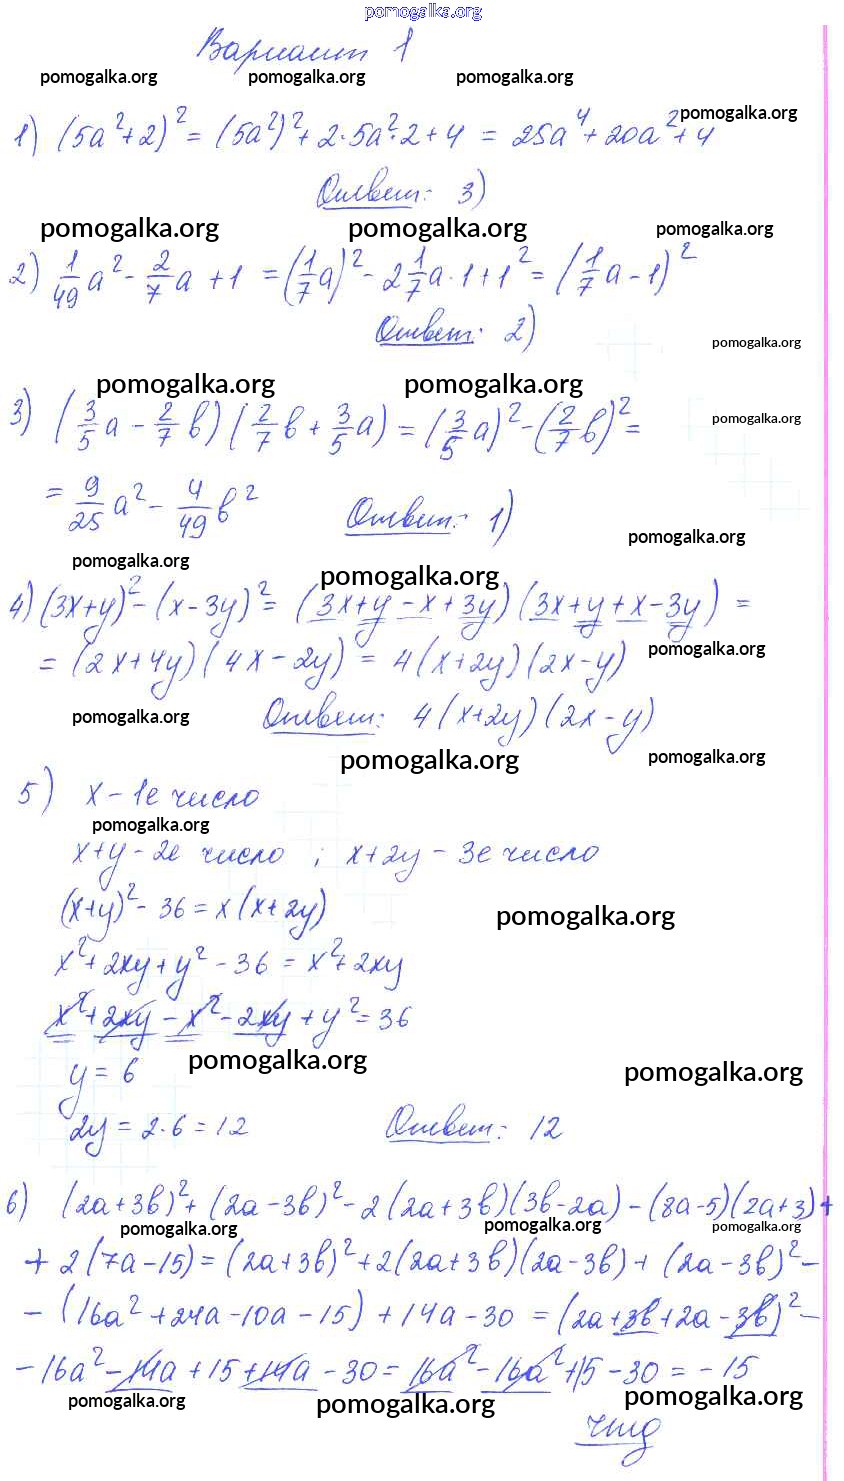 pomogalka.org
Вариант 1
pomogalka.org pomogalka.org pomogalka.org
pomogalka.org
1) (5a²+2)² = (5a²)²+2·5a²·2+4 = 25a⁴+20a²+4
Ответ: 3)
pomogalka.org pomogalka.org pomogalka.org
2) 1/49 a² - 2/7 a + 1 = (1/7 a)² - 2 1/7 a·1+1² = (1/7 a - 1)²
Ответ: 2)
pomogalka.org
pomogalka.org pomogalka.org
pomogalka.org
3) (3/5 a - 2/7 b)(2/7 b + 3/5 a) = (3/5 a)² - (2/7 b)² =
= 9/25 a² - 4/49 b² Ответ: 1)
pomogalka.org
pomogalka.org
pomogalka.org
4) (3x+y)² - (x-3y)² = (3x+y-x+3y)(3x+y+x-3y) =
= (2x+4y)(4x-2y) = 4(x+2y)(2x-y)
pomogalka.org
pomogalka.org
Ответ: 4(x+2y)(2x-y)
pomogalka.org pomogalka.org
5) x - 1е число
pomogalka.org
x+y - 2е число ; x+2y - 3е число
(x+y)² - 36 = x(x+2y)
pomogalka.org
x²+2xy+y² - 36 = x²+2xy
x²+2xy - x² - 2xy + y² = 36
pomogalka.org
pomogalka.org
y = 6
2y = 2·6 = 12 Ответ: 12
6) (2a+3b)²+(2a-3b)²-2(2a+3b)(3b-2a)-(8a-5)(2a+3)+
pomogalka.org pomogalka.org pomogalka.org
+ 2(7a-15) = (2a+3b)²+2(2a+3b)(2a-3b)+(2a-3b)²-
- (16a²+24a-10a-15)+14a-30 = (2a+3b+2a-3b)²-
- 16a²-14a+15+14a-30 = 16a²-16a²+15-30 = -15
pomogalka.org pomogalka.org pomogalka.org
чтд